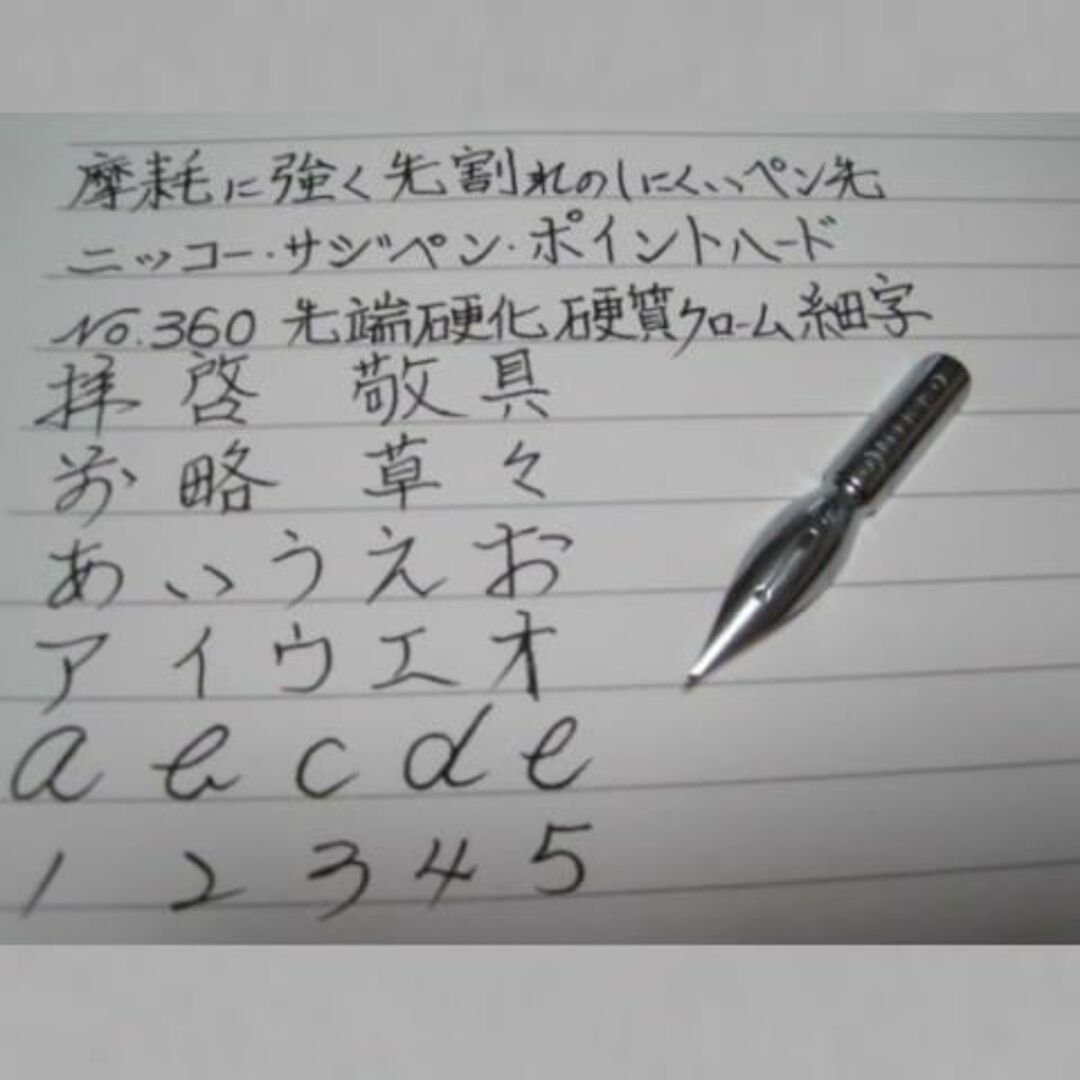 摩耗に強く先割れのしにくいペン先
ニッコー・サジペン・ポイントハード
No.360 先端硬化 硬質クローム 細字
拝啓 敬具
前略 草々
あいうえお
アイウエオ
a b c d e
1 2 3 4 5